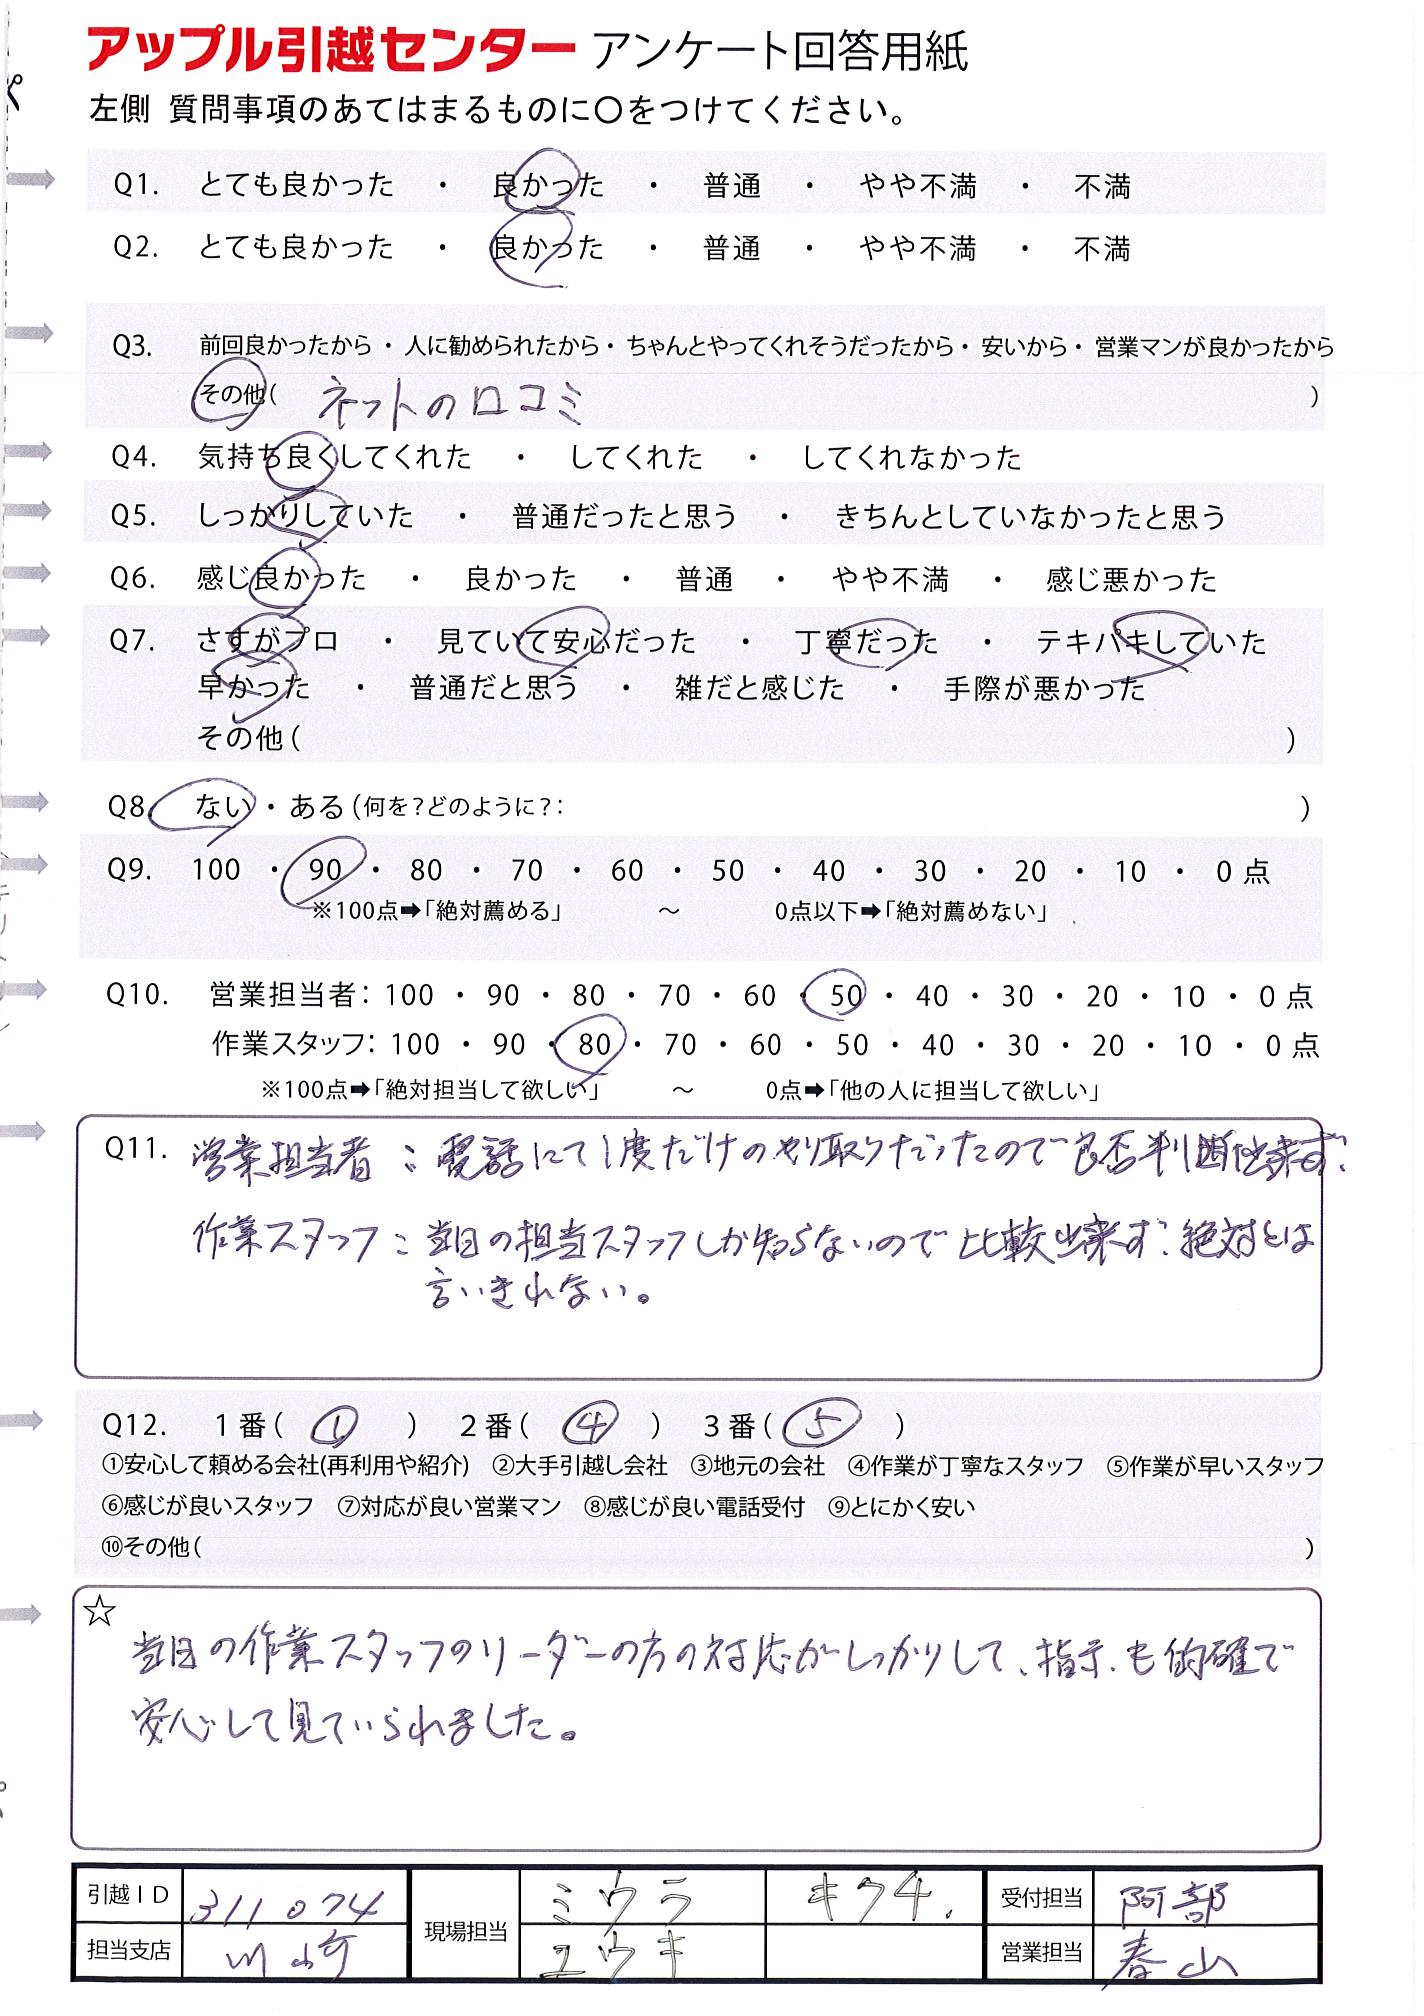 アップル引越センター アンケート回答用紙
左側 質問事項のあてはまるものに〇をつけてください。
Q1. とても良かった ・ 良かった ・ 普通 ・ やや不満 ・ 不満
Q2. とても良かった ・ 良かった ・ 普通 ・ やや不満 ・ 不満
Q3. 前回良かったから・人に勧められたから・ちゃんとやってくれそうだったから・安いから・営業マンが良かったから
その他( ネットの口コミ )
Q4. 気持ち良くしてくれた ・ してくれた ・ してくれなかった
Q5. しっかりしていた ・ 普通だったと思う ・ きちんとしていなかったと思う
Q6. 感じ良かった ・ 良かった ・ 普通 ・ やや不満 ・ 感じ悪かった
Q7. さすがプロ ・ 見ていて安心だった ・ 丁寧だった ・ テキパキしていた
早かった ・ 普通だと思う ・ 雑だと感じた ・ 手際が悪かった
その他( )
Q8 ない ・ ある(何を?どのように?: )
Q9. 100 ・ 90 ・ 80 ・ 70 ・ 60 ・ 50 ・ 40 ・ 30 ・ 20 ・ 10 ・ 0 点
※100点➡「絶対薦める」 ～ 0点以下➡「絶対薦めない」
Q10. 営業担当者: 100 ・ 90 ・ 80 ・ 70 ・ 60 ・ 50 ・ 40 ・ 30 ・ 20 ・ 10 ・ 0 点
作業スタッフ: 100 ・ 90 ・ 80 ・ 70 ・ 60 ・ 50 ・ 40 ・ 30 ・ 20 ・ 10 ・ 0 点
※100点➡「絶対担当して欲しい」 ～ 0点➡「他の人に担当して欲しい」
Q11. 営業担当者:電話にて1度だけのやり取りだったので良否判断出来ず。
作業スタッフ:当日の担当スタッフしか知らないので比較出来ず。絶対とは
言いきれない。
Q12. 1番( ① ) 2番( ④ ) 3番( ⑤ )
①安心して頼める会社(再利用や紹介) ②大手引越し会社 ③地元の会社 ④作業が丁寧なスタッフ ⑤作業が早いスタッフ
⑥感じが良いスタッフ ⑦対応が良い営業マン ⑧感じが良い電話受付 ⑨とにかく安い
⑩その他( )
☆
当日の作業スタッフのリーダーの方の対応がしっかりして、指示も的確で
安心して見ていられました。
引越ID 311074 現場担当 ミウラ キクチ 受付担当 阿部
担当支店 川崎 ユウキ 営業担当 春山